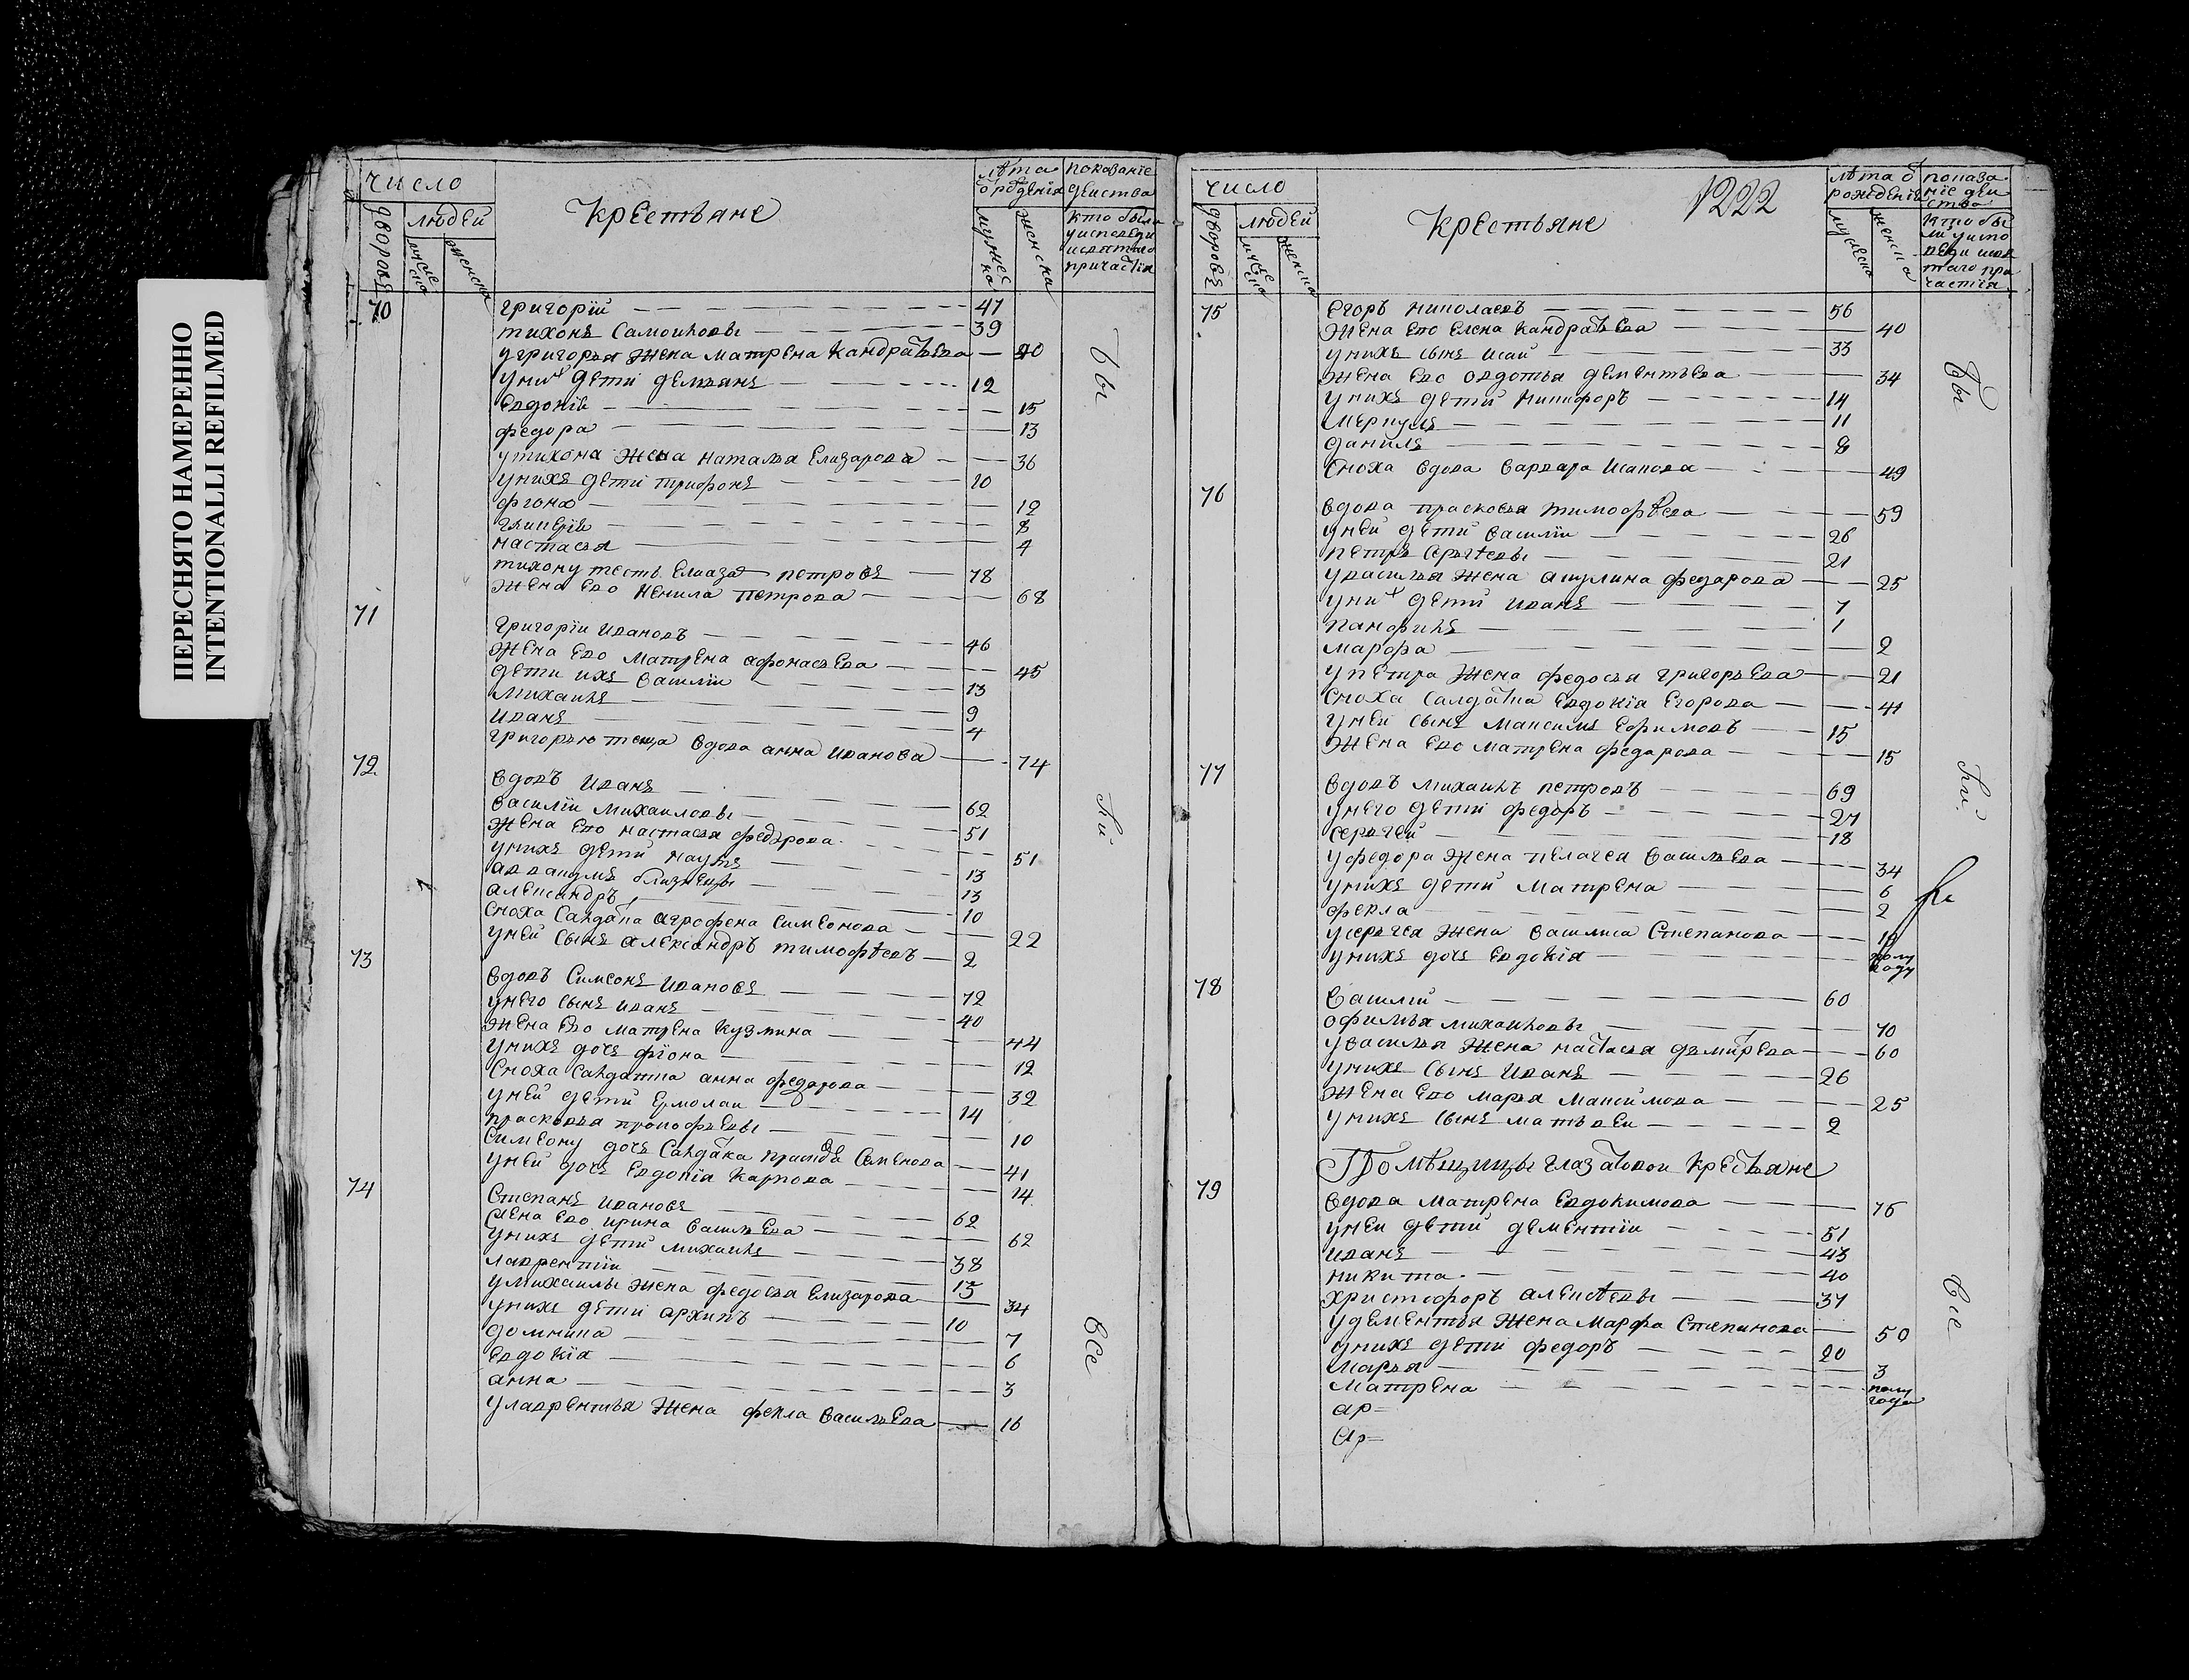 ПЕРЕСНЯТО НАМЕРЕННО
INTENTIONALLI REFILMED
число
дворовъ
людей
мужеска
женска
Крестьяне
лѣта
о рожденія
мужеска
женска
показаніе
действа
кто были
у исповеди
и святаго
причастія
70
григорій 41
тихонъ Самоиловы 39
у григорья жена матрена Кандратьева 40
у них дети демьянъ 12
Евдокія 15
федора 13
у тихона жена наталья Елизарова 36
у нихъ дети трифонъ 10
фиона 12
гликерія 8
настасья 4
тихону тесть петровъ 78
жена ево Ненила петрова 68
71
григоріи ивановъ 46
жена ево матрена афонасьева 45
дети ихъ василіи 13
михаилъ 9
иванъ 4
григорью теща вдова анна иванова 74
72
вдовъ иванъ 62
василіи михаиловы 51
жена ево настасья федорова 51
у нихъ дети наумъ 13
аввакумъ близнецы 13
александръ 10
сноха салдатка агрофена симеонова 22
у неи сынъ александръ тимофѣевъ 2
73
вдовъ симеонъ ивановъ 72
у него сынъ иванъ 40
жена ево матрена кузмина 44
у нихъ дочь фіона 12
сноха салдатка анна федарова 32
у неи дети Ермолаи 14
прасковья прокофьевы 10
симеону дочь салдатка Семенова 41
у неи дочь Евдокія Карпова 14
74
степанъ ивановъ 62
жена ево ирина васильева 62
у нихъ дети михаилъ 38
лаврентіи 15
у михаилы жена федосья Елизарова 34
у нихъ дети архипъ 10
домника 7
Евдокія 6
анна 3
у лаврентья жена фекла васильева 16
бы
ли
все
число
дворовъ
людей
мужеска
женска
Крестьяне
1222
лѣта о
рожденія
мужеска
женска
показа
ніе деи
ства
кто бы
ли у испо
веди и свя
таго при
частія
75
Егоръ николаевъ 56
жена ево Елена кандратьева 40
у нихъ сынъ исаи 33
жена ево авдотья дементьева 34
у нихъ дети никифоръ 14
меркулъ 11
данилъ 8
сноха вдова варвара исакова 49
76
вдова прасковья тимофѣева 59
у неи дети василіи 26
петръ сергѣевы 21
у василья жена акулина федарова 25
у них дети иванъ 7
панфилъ 1
марфа 2
у петра жена федосья григорьева 21
сноха салдатка Евдокія Егорова 41
у неи сынъ максимъ Ефимовъ 15
жена ево матрена федарова 15
77
вдовъ михаилъ петровъ 69
у него дети федоръ 27
сергеи 18
у федора жена пелагея васильева 34
у нихъ дети матрена 6
фекла 2
у сергея жена василиса степанова 19
у нихъ дочь Евдокія полу
году
78
василіи 60
офимья михаиловы 70
у василья жена настасья дьмитрева 60
у нихъ сынъ иванъ 26
жена ево марья максимова 25
у нихъ сынъ матвеи 2
Помѣщицы глазатовои крестьяне
79
вдова матрена Евдокимова 76
у неи дети дементіи 51
иванъ 43
никита 40
христофоръ алексѣевы 37
у дементья жена марфа степанова 50
у нихъ дети федоръ 20
марья 3
матрена полу
года
ар=
ар=
бы
ли
все